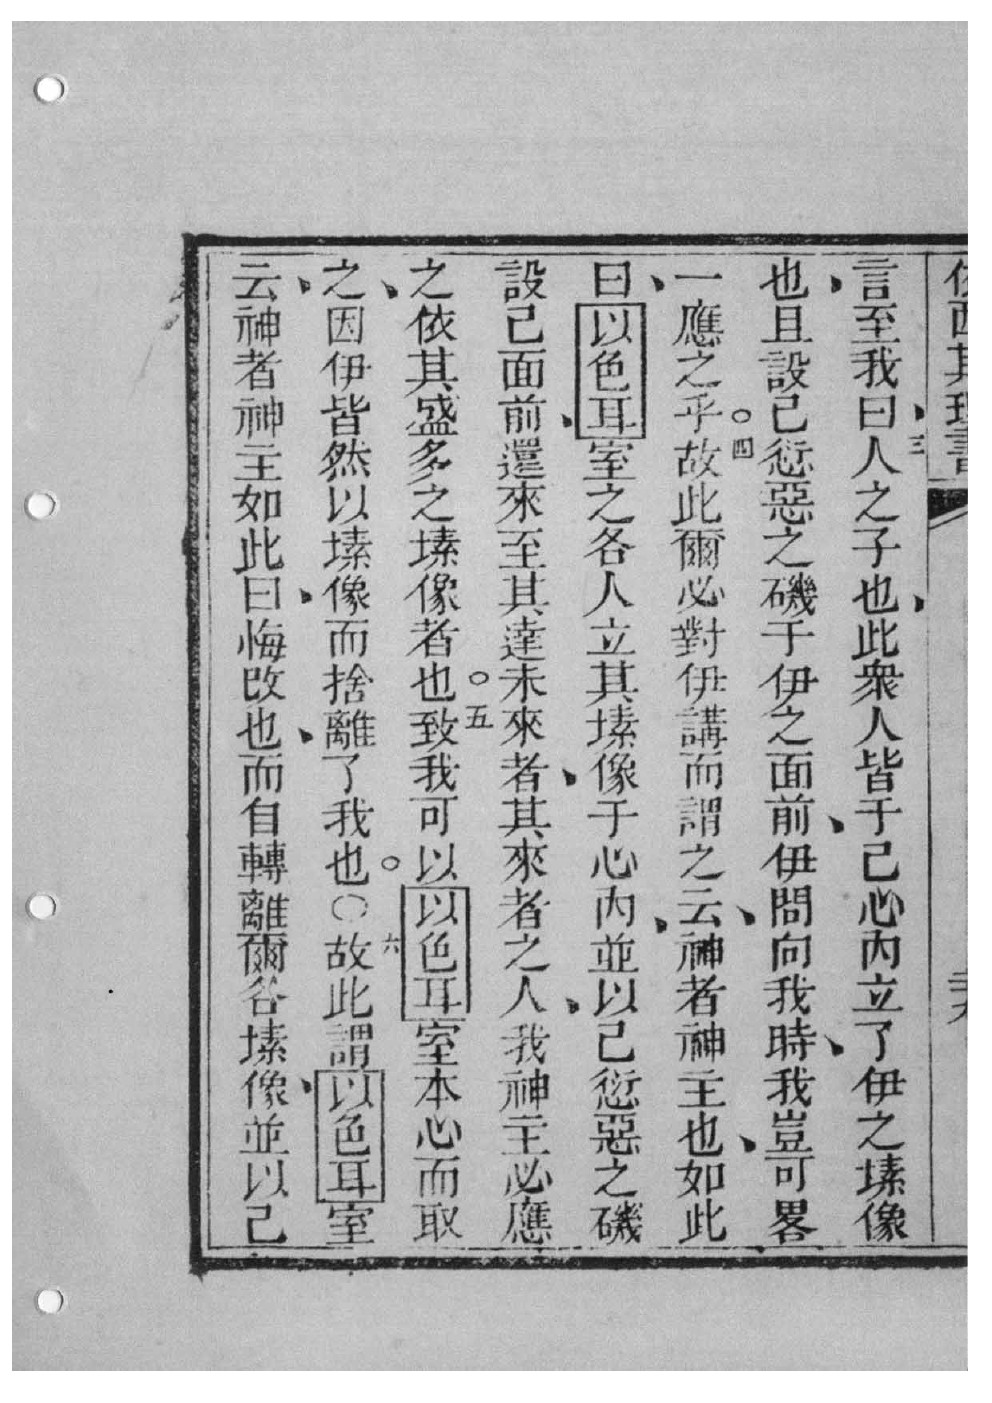 西其理書
言至我曰三人之子也此衆人皆于己心內立了伊之塐像
也且設己愆惡之磯于伊之面前伊問向我時我豈可畧
一應之乎四故此爾必對伊講而謂之云神者神主也如此
曰以色耳室之各人立其塐像于心內並以己愆惡之磯
設己面前還來至其達未來者其來者之人我神主必應
之依其盛多之塐像者也五致我可以以色耳室本心而取
之因伊皆然以塐像而捨離了我也〇六故此謂以色耳室
云神者神主如此曰悔改也而自轉離爾各塐像並以己